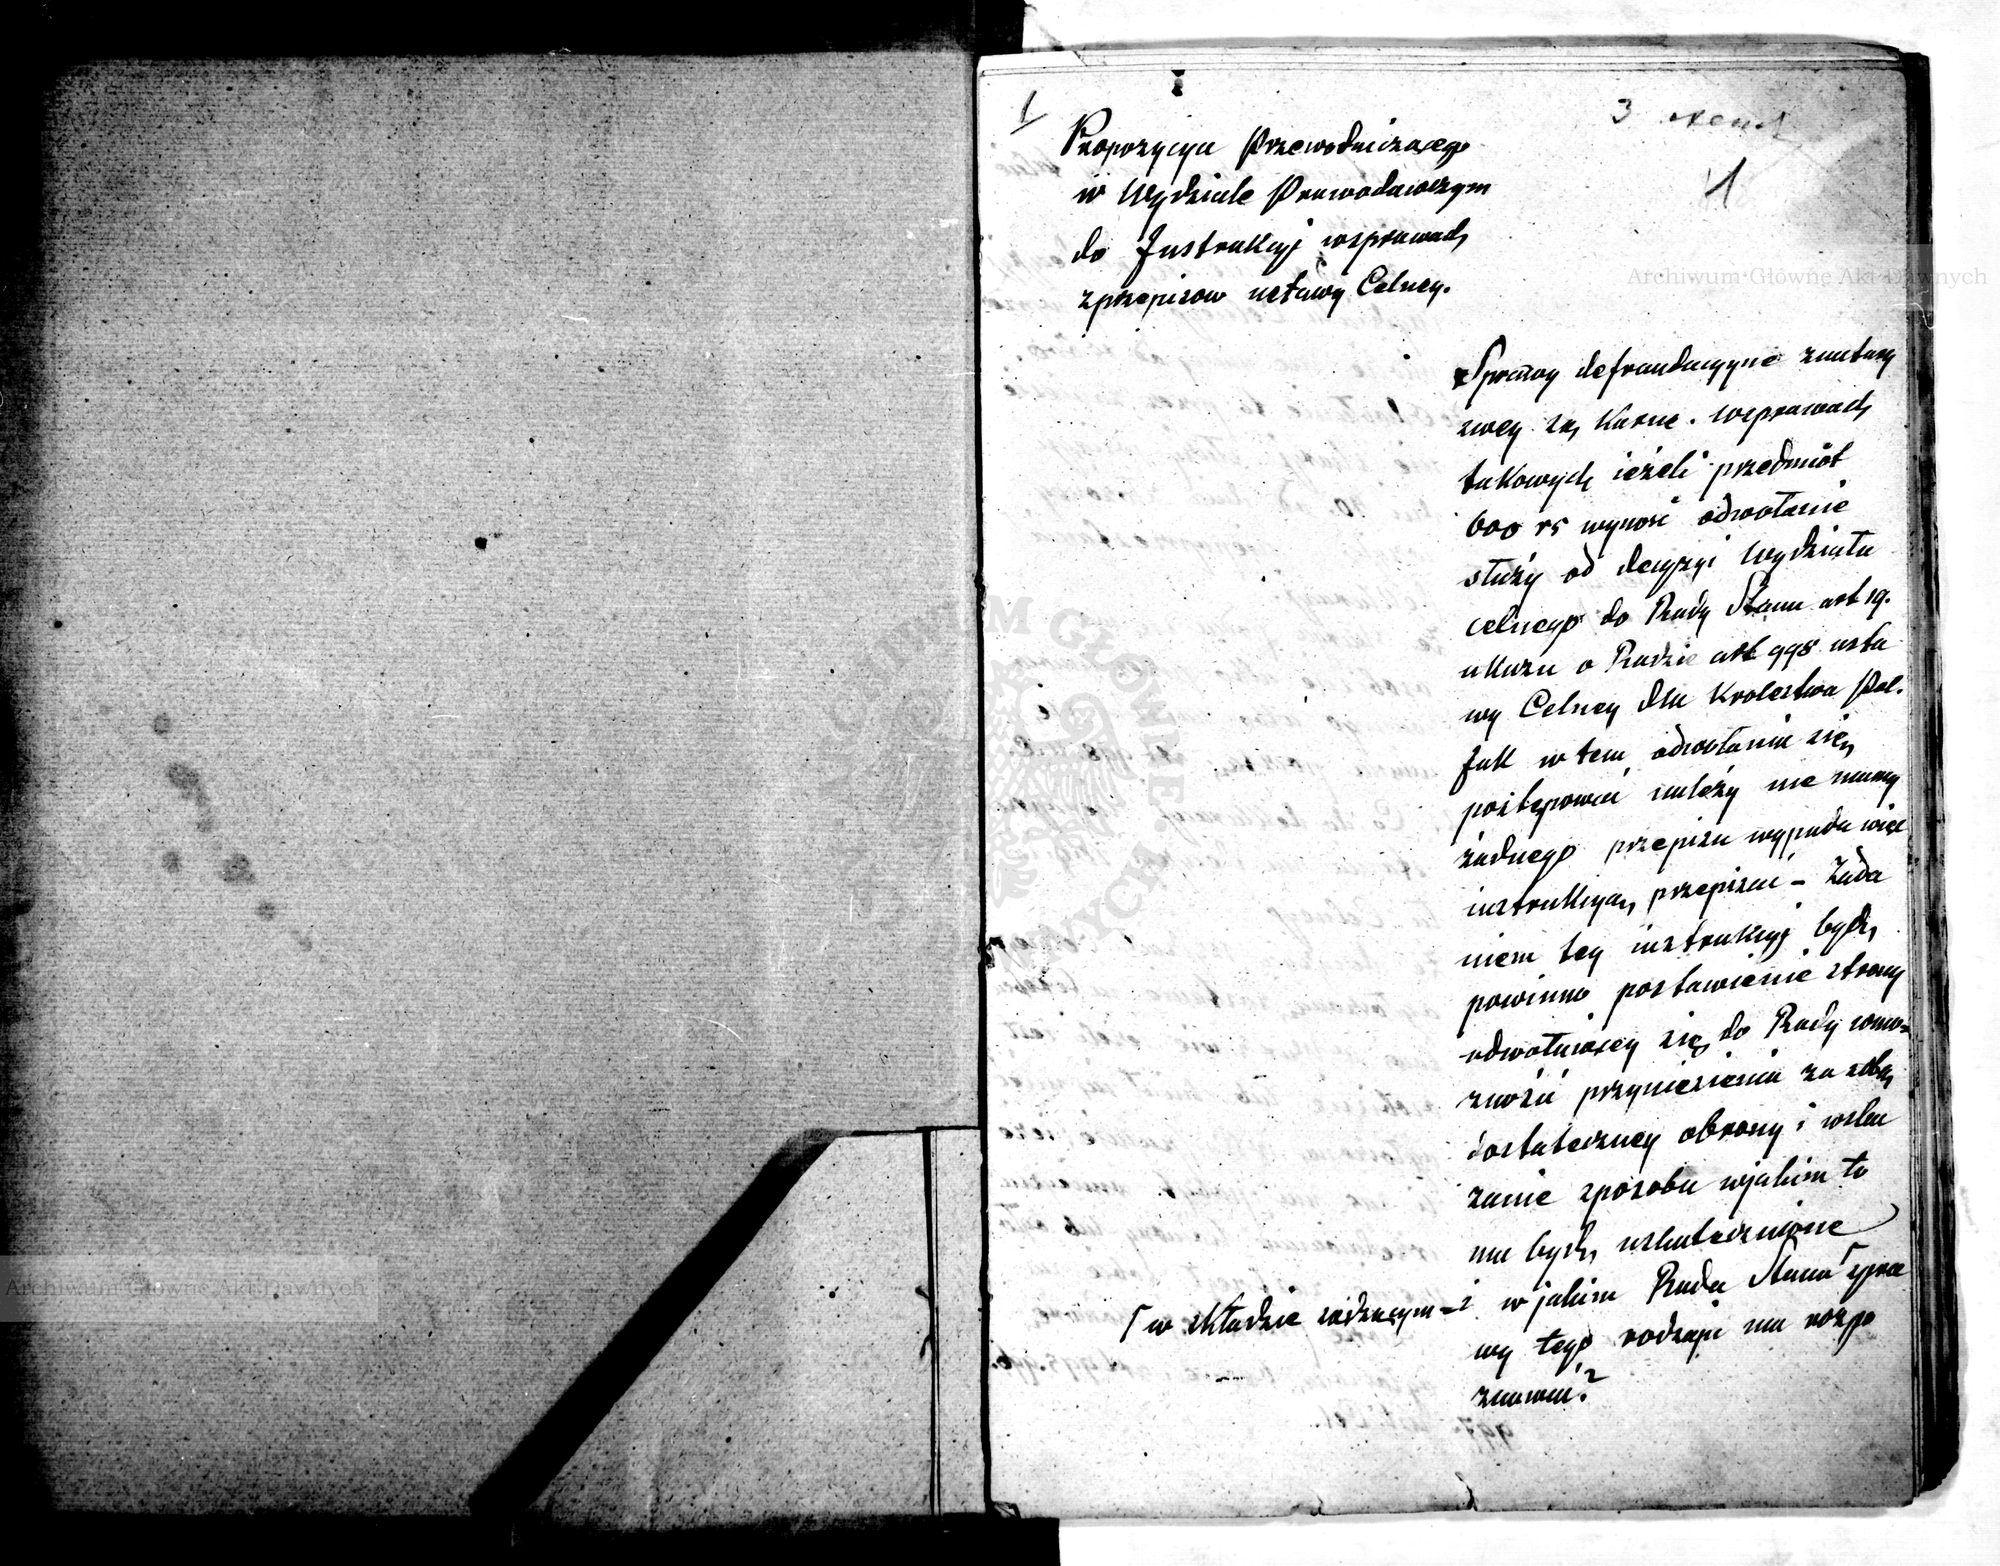 1
3
1
Propozycya Przewodniczącego
w Wydziale Prawodawczym
do Instrukcyi wsprawach
zprzepisow ustawy Celney.
Sprawy defraudacyyne znatury
swey są Karne. wsprawach
takowych ieżeli przedmiot
600 rs wynosi odwołanie
służy od decyzyi Wydziału
celnego do Rady Stanu art 19.
ukazu o Radzie art 998 usta
wy Celney dla Krolestwa Pol.
Jak w tem odwołaniu się
postępować należy nie mamy
żadnego przepisu wypada więc
instrukcyą przepisać - Zada
niem tey instrukcyi bydź
powinno postawienie strony
odwołuiącey się do Rady wmo-
żność przyniesienia za sobą
dostateczney obrony i wska
zanie sposobu wjakim to
ma bydź uskutecznione
i w jakim Rada Stanu Γ spra
Γ w składzie sądzącym -
wy tego rodzaju ma rozpo
znawać?
Archiwum Główne Akt Dawnych
Archiwum Główne Akt Dawnych
ARCHIWUM GŁÓWNE AKT DAWNYCH